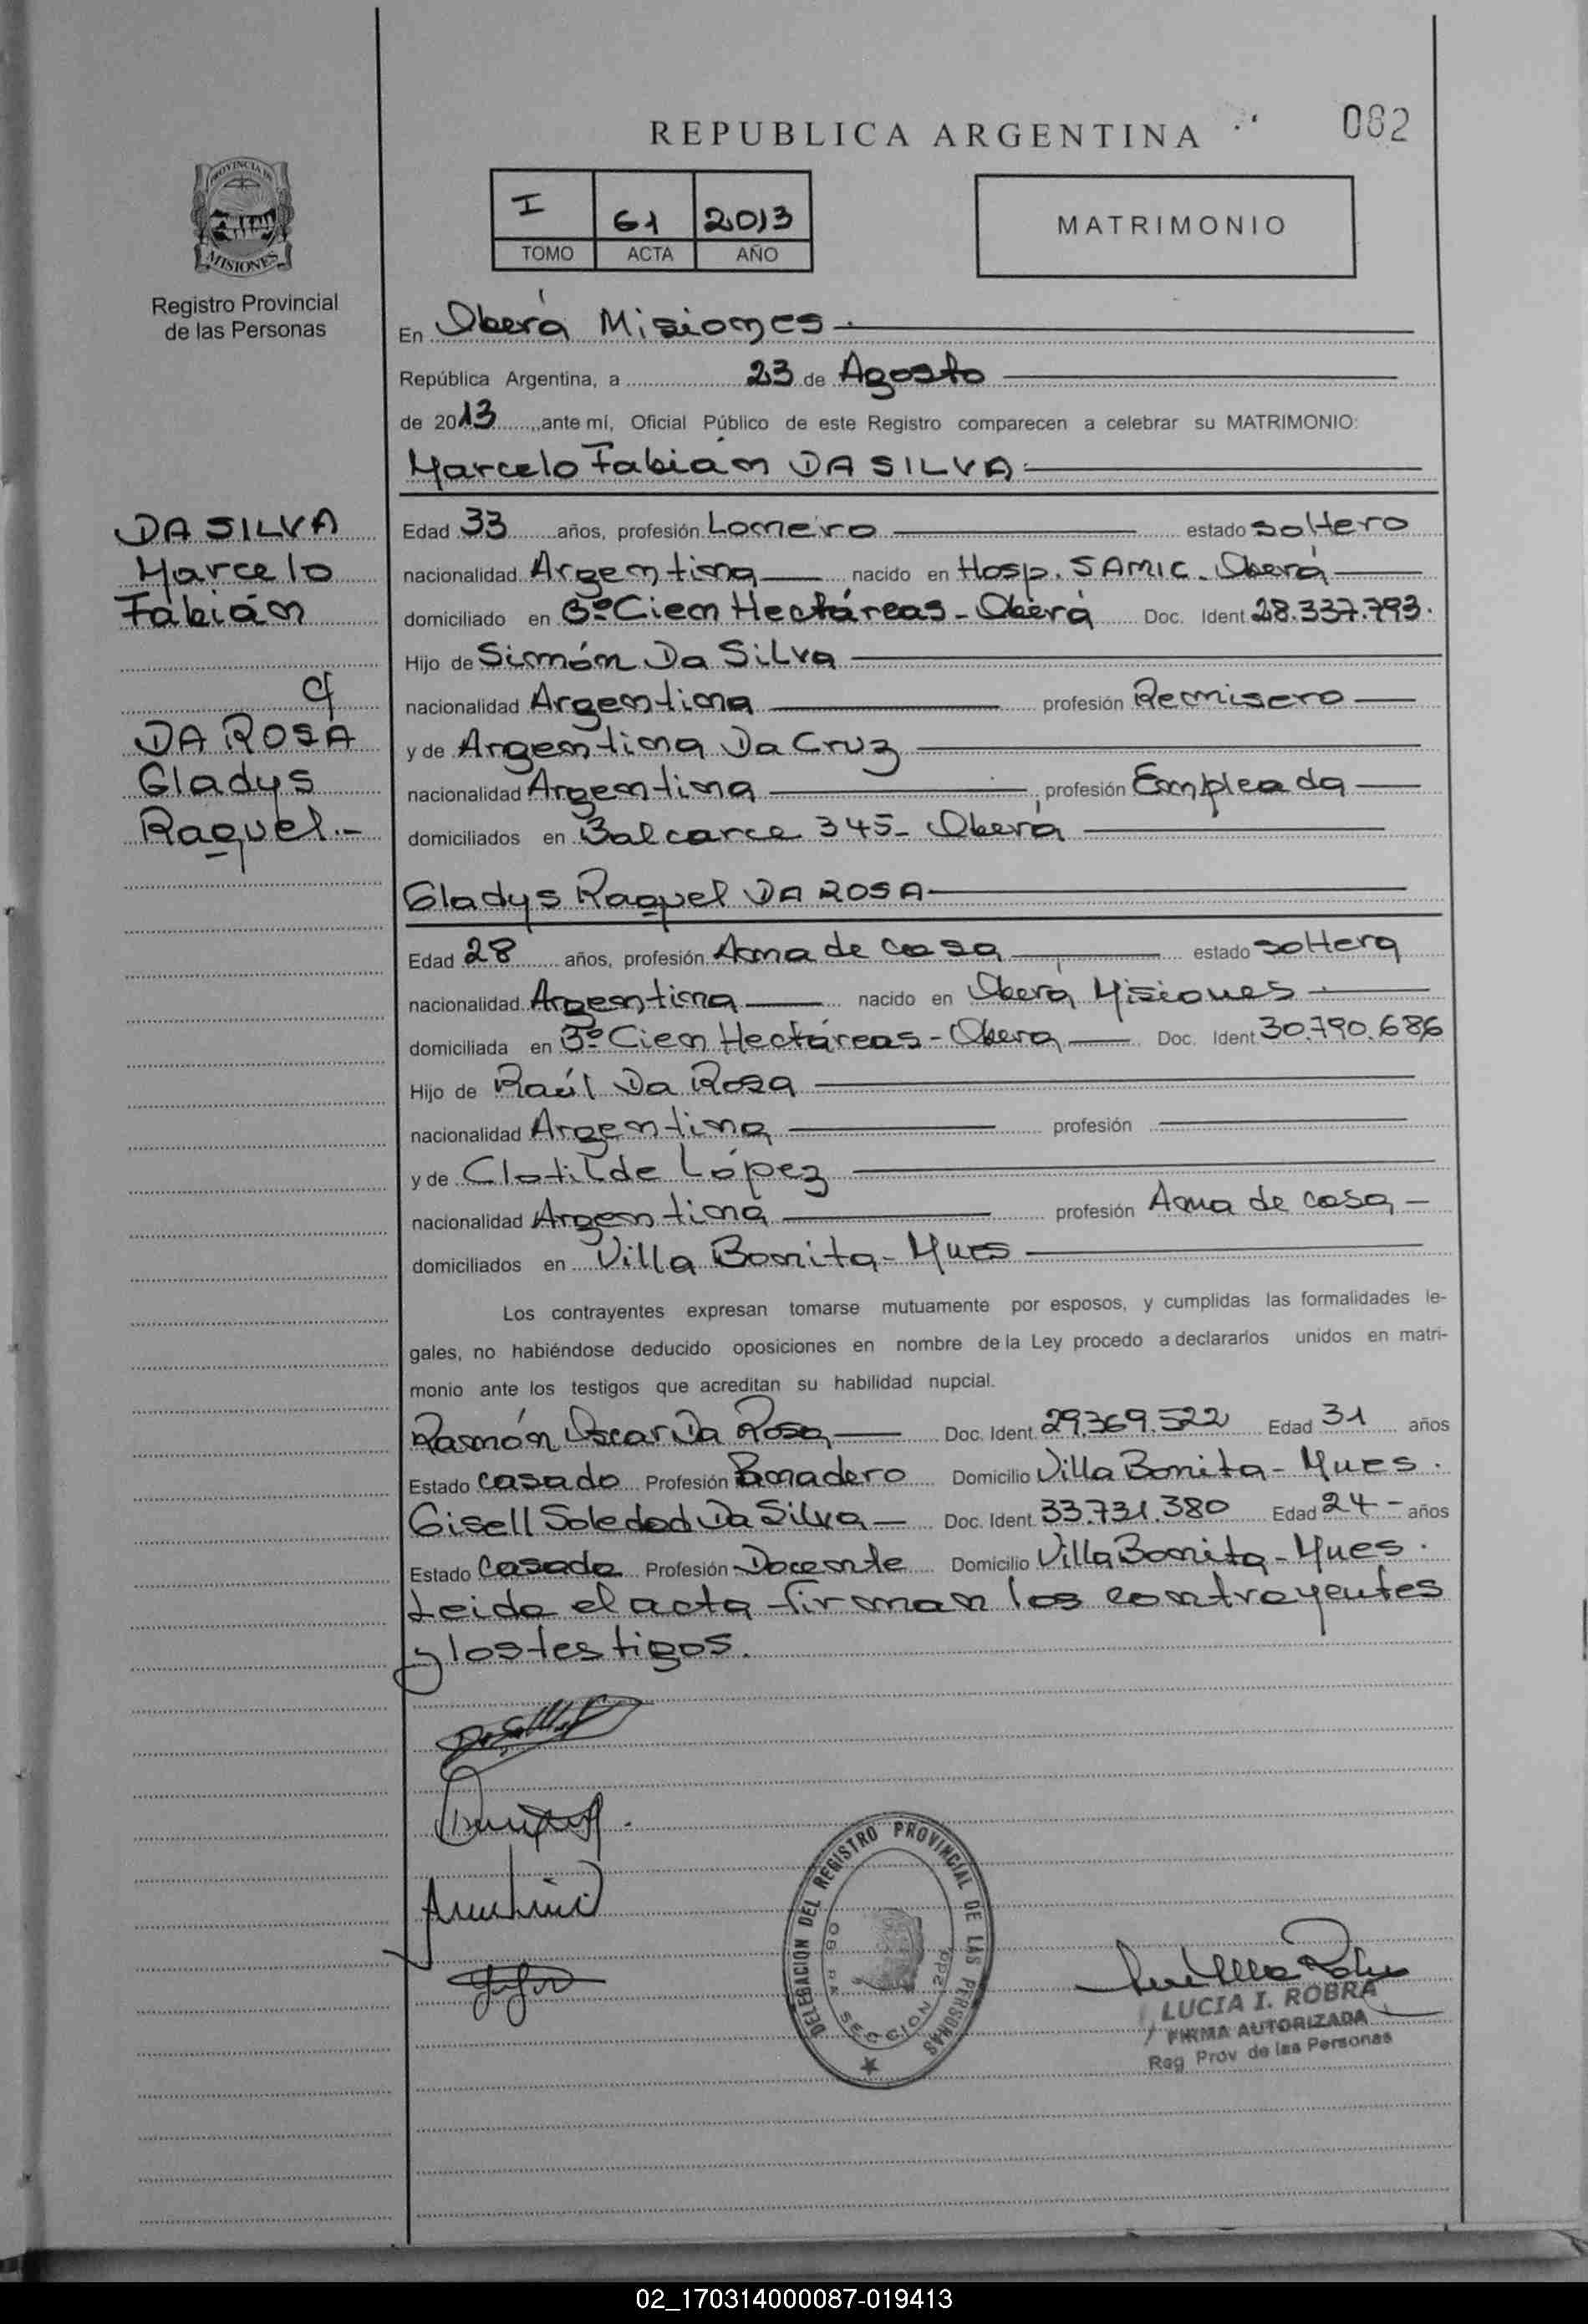 082
REPUBLICA ARGENTINA
I 61 2013
TOMO ACTA AÑO
MATRIMONIO
PROVINCIA DE
MISIONES
Registro Provincial
de las Personas
En Oberá Misiones.
República Argentina, a 23 de Agosto
de 2013, ante mí, Oficial Público de este Registro comparecen a celebrar su MATRIMONIO:
Marcelo Fabián DA SILVA
DA SILVA
Marcelo
Fabián
c/
DA ROSA
Gladys
Raquel.-
Edad 33 años, profesión Lomeiro estado soltero
nacionalidad Argentina nacido en Hosp. SAMIC. Oberá
domiciliado en 3º Cien Hectáreas - Oberá Doc. Ident. 28.337.793.
Hijo de Simón Da Silva
nacionalidad Argentina profesión Remisero
y de Argentina Da Cruz
nacionalidad Argentina, profesión Empleada
domiciliados en Balcarce 345- Oberá
Gladys Raquel DA ROSA
Edad 28 años, profesión Ama de casa estado soltera
nacionalidad Argentina nacido en Oberá Misiones
domiciliada en 3º Cien Hectáreas - Oberá Doc. Ident. 30.790.686
Hijo de Raúl Da Rosa
nacionalidad Argentina profesión
y de Clotilde López
nacionalidad Argentina profesión Ama de casa
domiciliados en Villa Bonita - Mnes
Los contrayentes expresan tomarse mutuamente por esposos, y cumplidas las formalidades le-
gales, no habiéndose deducido oposiciones en nombre de la Ley procedo a declararlos unidos en matri-
monio ante los testigos que acreditan su habilidad nupcial.
Ramón Oscar Da Rosa Doc. Ident. 29.369.522 Edad 31 años
Estado casado Profesión Panadero Domicilio Villa Bonita - Mnes.
Gisell Soledad Da Silva Doc. Ident. 33.731.380 Edad 24 - años
Estado Casada Profesión Docente Domicilio Villa Bonita - Mnes.
Leida el acta firman los contrayentes
y los testigos.
DELEGACION DEL REGISTRO PROVINCIAL DE LAS PERSONAS
SECCION 2da
LUCIA I. ROBRA
FIRMA AUTORIZADA
Reg Prov de las Personas
02_170314000087-019413